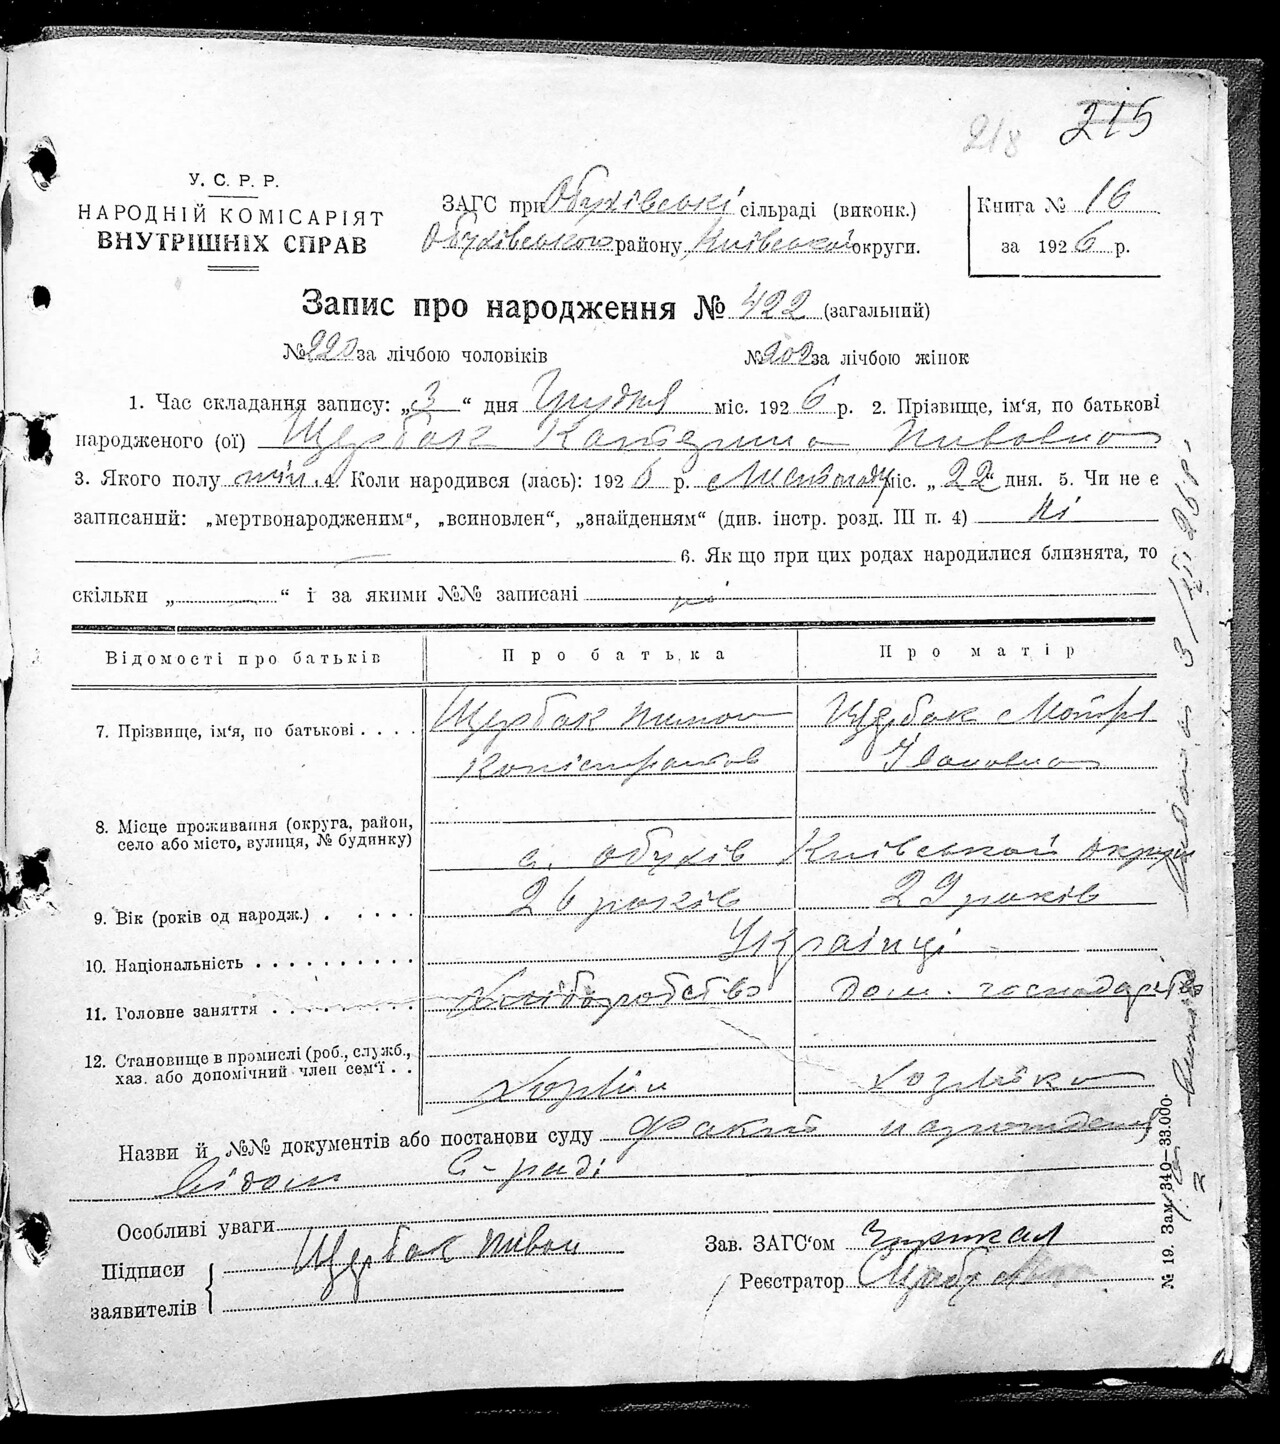 218 215
У. С. Р. Р.
НАРОДНІЙ КОМІСАРІЯТ
ВНУТРІШНІХ СПРАВ
ЗАГС при Обухівські сільраді (виконк.)
Обухівського району, Київської округи.
Книга № 16
за 1926 р.
Запис про народження № 422 (загальний)
№ 220 за лічбою чоловіків № 202 за лічбою жінок
1. Час складання запису: „3“ дня Грудня міс. 1926 р. 2. Прізвище, ім‘я, по батькові
народженого (ої) Щербак Катерина
3. Якого полу жін. 4. Коли народився (лась): 1926 р. Листопаду міс. „22“ дня. 5. Чи не є
записаний: „мертвонародженим“, „всиновлен“, „знайденням“ (див. інстр. розд. III п. 4) Ні
6. Як що при цих родах народилися близнята, то
скільки „ “ і за якими №№ записані ні
Відомості про батьків Про батька Про матір
7. Прізвище, ім‘я, по батькові . . . . Щербак Щербак Мотря
Івановна
8. Місце проживання (округа, район,
село або місто, вулиця, № будинку)
с. Обухів Київської округи
9. Вік (років од народж.) . . . . . 26 років 29 років
10. Національність . . . . . . . . . . Українці
11. Головне заняття . . . . . . . . . Хліборобство Дом. господарство
12. Становище в промислі (роб., служб.,
хаз. або допомічний член сем‘ї . .
Хозяїн Хозяйка
Назви й №№ документів або постанови суду Факт нарождения
відом С-раді
Особливі уваги
Підписи
заявителів
Щербак
Зав. ЗАГС‘ом
Реєстратор
№ 19. Зам. 340—33.000.